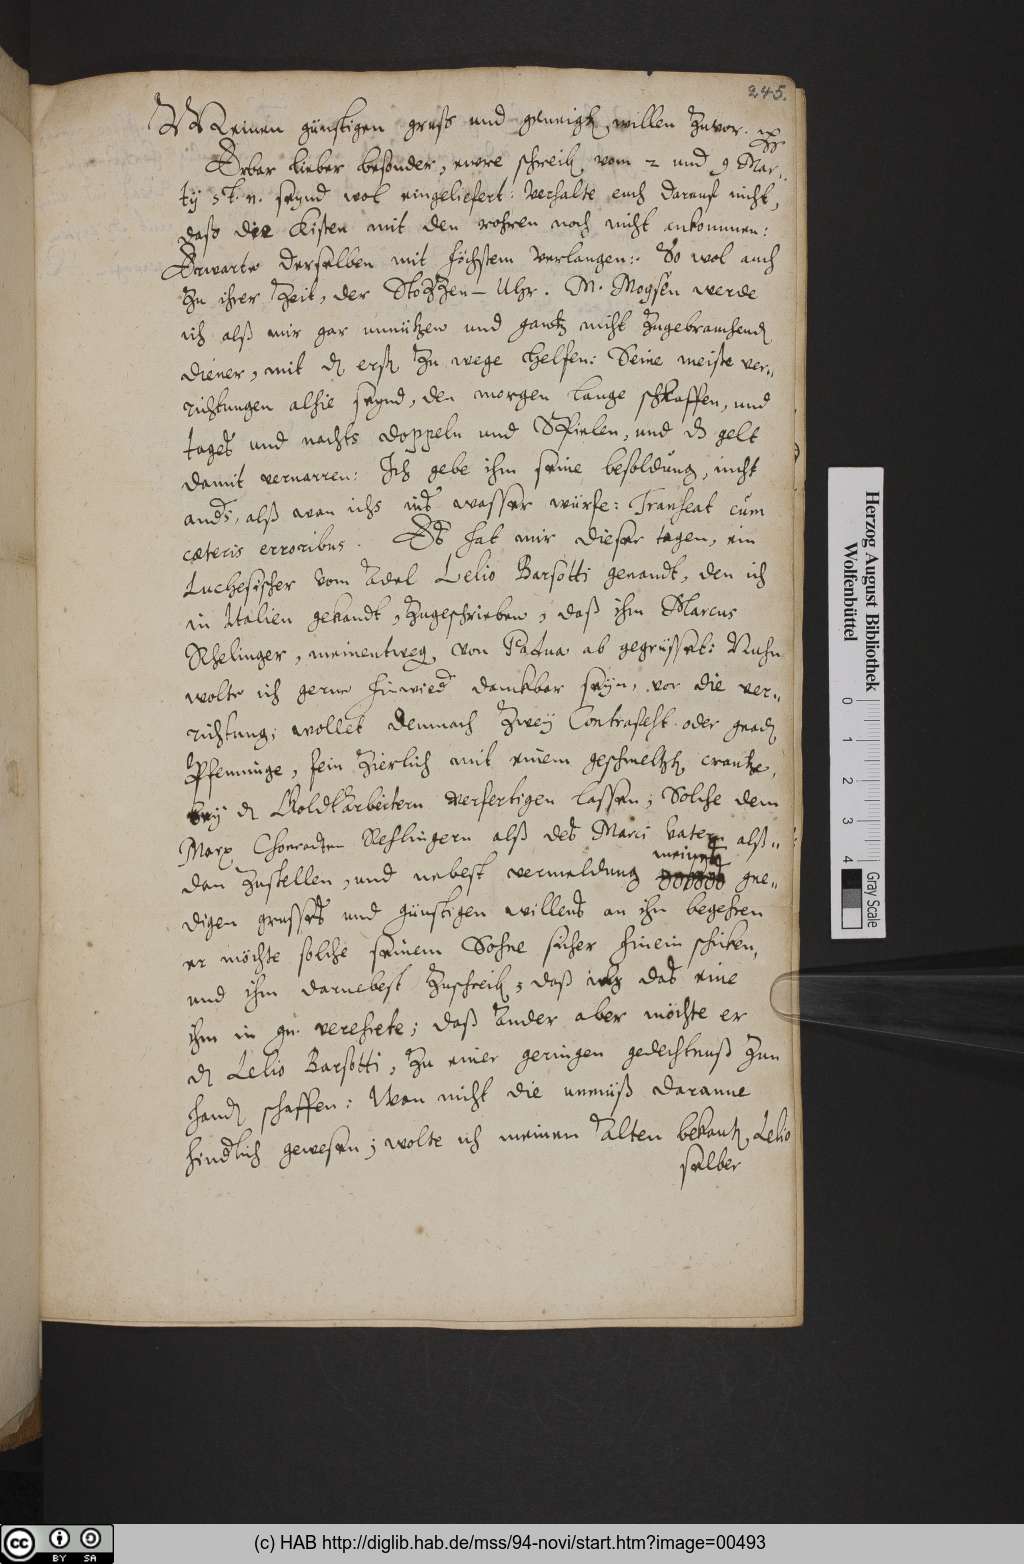 245.
Meinen günstigen gruß und geneigtẽ willen Zuvor.
Erbar lieber besonder, ewre schreibẽ vom 2 und 9 Mar-
tÿ st. n. seynd wol eingeliefert: Verhalte euch darauf nicht,
daß die Kisten mit den rohren noch nicht ankommen:
Erwarte derselben mit höchstem verlangen: So wol auch
zu ihrer Zeit, der Stozzen-Uhr. M. Moysen werde
ich alß mir gar unnützen und gantz nicht Zugebrauchendẽ
diener, mit dẽ erstẽ Zu wege helfen: Seine meiste ver-
richtungen alhie seynd, den morgen lange schlaffen, und
tages und nachts doppeln und Spielen, und dz gelt
damit vernarren: Ich gebe ihm seine besoldung, nicht
anders, alß wan ichs ins wasser würfe: Transeat cum
cæteris erroribus. Es hat mir dieser tagen, ein
Luchesischer vom Adel Lelio Barsotti genandt, den ich
in Italien gekandt, Zugeschrieben, daß ihm Marcus
Rhelinger, meinentweg, von Padua ab gegrüsset: Nuhn
wolte ich gerne hinwied danckbar seyn, vor die ver-
richtung; wollet demnach Zwey Contrafeht oder gnadẽ
Pfenninge, fein Zierlich mit einem geschmeltztẽ crantze,
bey dẽ Goldtarbeitern verfertigen lassen; Solche dem
Marx Chonradten Rehlingern alß des Marci vater alß-
dan Zustellen, und nebest vermeldung meines gne-
digen grusses und günstigen willens an ihn begehren
er möchte solche seinem Sohne sicher hinein schicken,
und ihm darnebest Zuschreibẽ, daß das eine
ihm in gn. verehrete; daß Ander aber möchte er
dẽ Lelio Barsotti, Zu einer geringen gedechtnuß Zun
handẽ schaffen: Wan nicht die unmuß daranne
hindlich gewesen; wolte ich meinem Alten bekantẽ Lelio
selber
Herzog August Bibliothek
Wolfenbüttel
0 1 2 3 4
Gray Scale
cc BY SA
(c) HAB http://diglib.hab.de/mss/94-novi/start.htm?image=00493